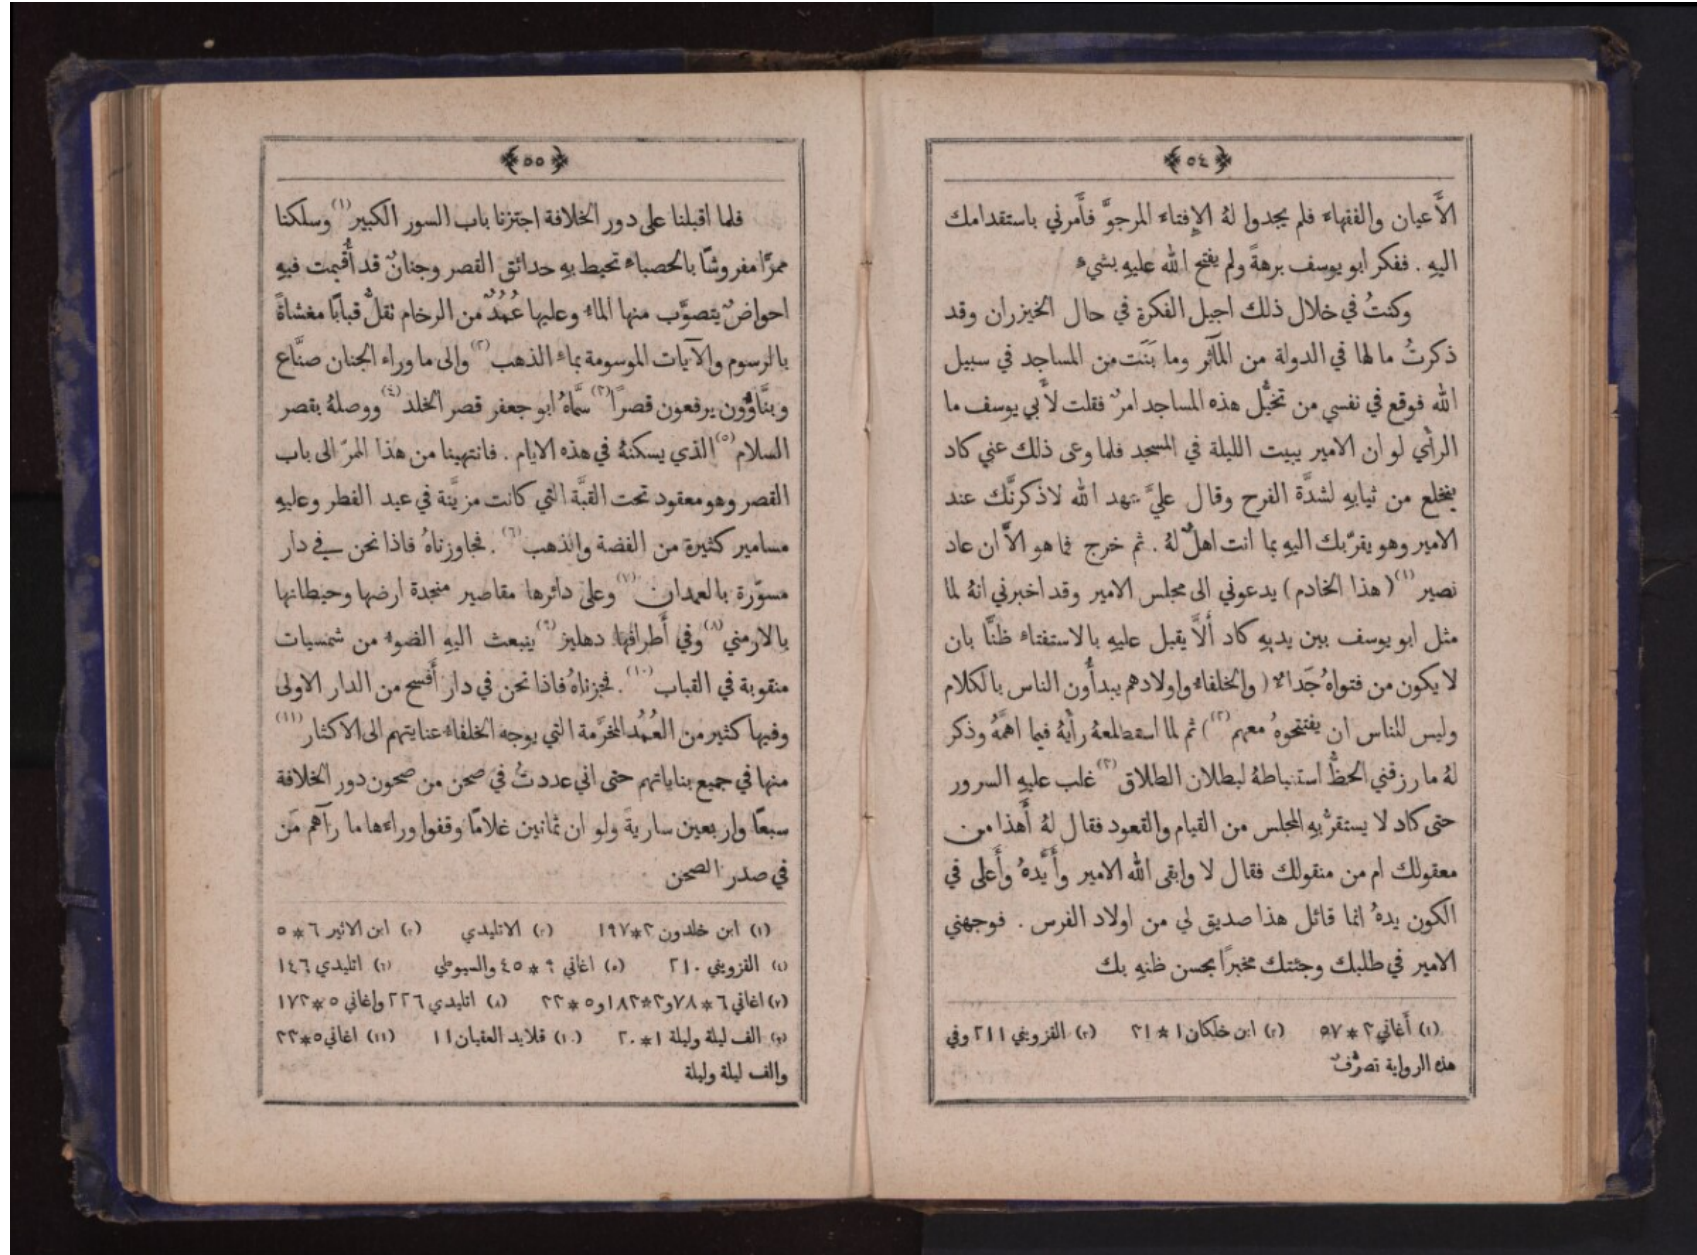 ﴿٥٤﴾
الأَعيان والفقهاء فلم يجدوا لهُ الإِفتاء المرجوَّ فأَمرني باستقدامك
اليهِ . ففكر ابو يوسف برهةً ولم يفتح الله عليهِ بشيء
وكنتُ في خلال ذلك اجيل الفكرة في حال الخيزران وقد
ذكرتُ ما لها في الدولة من المآثر وما بَنَت من المساجد في سبيل
الله فوقع في نفسي من تخيُّل هذه المساجد امرٌ فقلت لأَبي يوسف ما
الرأي لو ان الامير يبيت الليلة في المسجد فلما وعى ذلك عني كاد
ينخلع من ثيابهِ لشدَّة الفرح وقال عليَّ عهد الله لاذكرنَّك عند
الامير وهو يقرّبك اليهِ بما انت اهلٌ لهُ . ثم خرج فما هو الاَّ ان عاد
نصير (١) (هذا الخادم) يدعوني الى مجلس الامير وقد اخبرني انهُ لما
مثل ابو يوسف بين يديهِ كاد أَلاَّ يقبل عليهِ بالاستفتاء ظنًّا بان
لا يكون من فتواهُ جَداء (والخلفاء واولادهم يبدأُون الناس بالكلام
وليس للناس ان يفتتحوهُ معهم (٢)) ثم لما استطلعهُ رأيهُ فيما اهمَّهُ وذكر
لهُ ما رزقني الحظُّ استنباطهُ لبطلان الطلاق (٣) غلب عليهِ السرور
حتى كاد لا يستقرُّ بهِ المجلس من القيام والقعود فقال لهُ أَهذا من
معقولك ام من منقولك فقال لا وابقى الله الامير وأَيَّدهُ وأَعلى في
الكون يدهُ انما قائل هذا صديق لي من اولاد الفرس . فوجهني
الامير في طلبك وجئتك مخبرًا بحسن ظنهِ بك
(١) أَغاني ٣*٥٧ (٢) ابن خلكان ١*٢١ (٣) القزويني ٢١١ وفي
هذه الرواية تصرُّفٌ
﴿٥٥﴾
فلما اقبلنا على دور الخلافة اجتزنا باب السور الكبير (١) وسلكنا
ممرًّا مفروشًا بالحصباء تحيط بهِ حدائق القصر وجنانٌ قد أُقيمت فيهِ
احواضٌ يتصوَّب منها الماء وعليها عُمُدٌ من الرخام ثقلُّ قبابًا مغشاةً
بالرسوم والآيات الموسومة بماء الذهب (٢) والى ما وراء الجنان صنَّاع
وبنَّاؤُون يرفعون قصرًا (٣) سمَّاهُ ابو جعفر قصر الخلد (٤) ووصلهُ بقصر
السلام (٥) الذي يسكنهُ في هذه الايام . فانتهينا من هذا الممرّ الى باب
القصر وهو معقود تحت القبَّة التي كانت مزيَّنة في عيد الفطر وعليهِ
مسامير كثيرة من الفضة والذهب (٦) . فجاوزناهُ فاذا نحن في دار
مسوّرة بالعمدان (٧) وعلى دائرها مقاصير منجدة ارضها وحيطانها
بالارمني (٨) وفي أَطرافها دهليز (٩) ينبعث اليهِ الضوء من شمسيات
منقوبة في القباب (١٠) . فجزناهُ فاذا نحن في دار أَفسح من الدار الاولى
وفيها كثير من العُمُد المخرَّمة التي يوجه الخلفاء عنايتهم الى الاكثار (١١)
منها في جميع بناياتهم حتى اني عددتُ في صحن من صحون دور الخلافة
سبعًا واربعين ساريةً ولو ان ثمانين غلامًا وقفوا وراءها ما رآهم مَن
في صدر الصحن
(١) ابن خلدون ٣*١٩٧ (٢) الاتليدي (٣) ابن الاثير ٦*٥
(٤) القزويني ٢١٠ (٥) اغاني ٩*٤٥ والسيوطي (٦) اتليدي ١٤٦
(٧) اغاني ٦*٧٨ و٣*١٨٢ و٥*٢٢ (٨) اتليدي ٢٢٦ واغاني ٥*١٧٣
(٩) الف ليلة وليلة ١*٢٠ (١٠) قلايد العقيان ١١ (١١) اغاني ٥*٢٢
والف ليلة وليلة